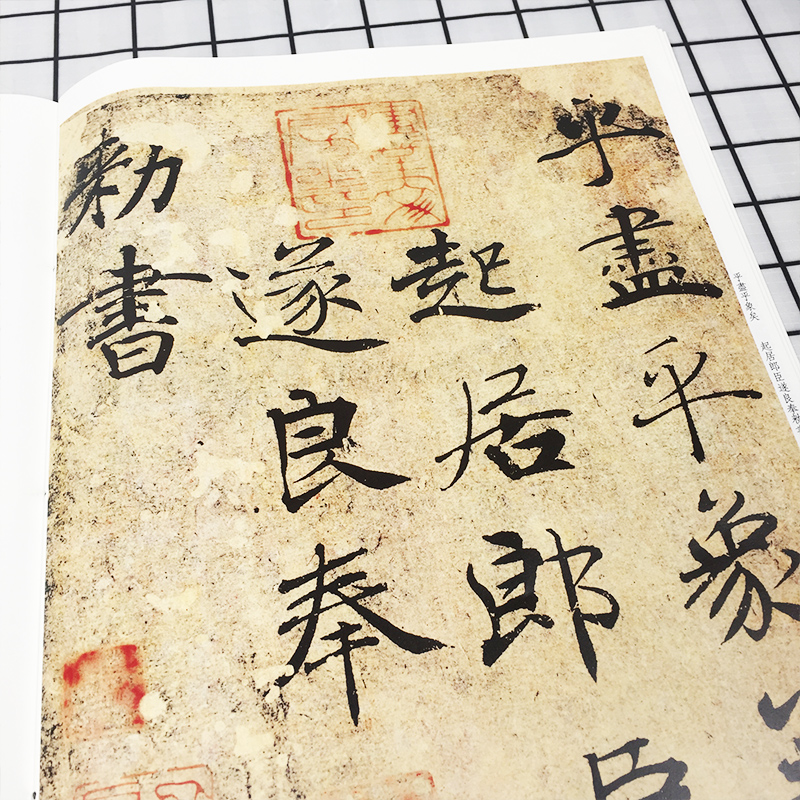 乎盡乎象矣
起居郎臣
遂良奉
勑書
乎盡乎象矣 起居郎臣遂良奉勑